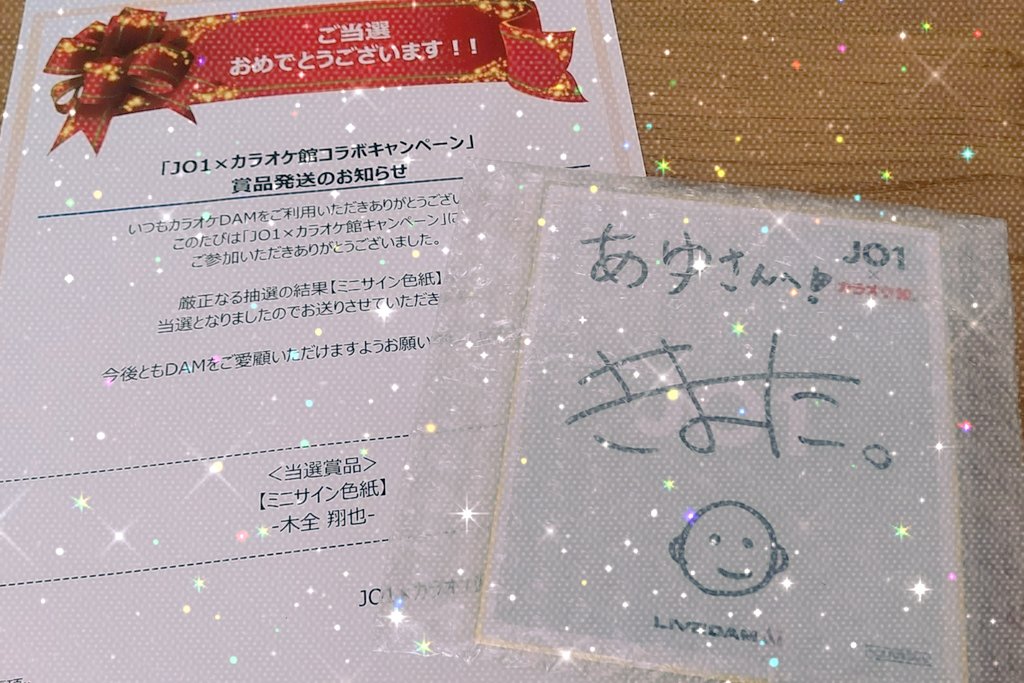 ご当選
おめでとうございます！！
「JO1×カラオケ館コラボキャンペーン」
賞品発送のお知らせ
いつもカラオケDAMをご利用いただきありがとうござい
このたびは「JO1×カラオケ館キャンペーン」に
ご参加いただきありがとうございました。
厳正なる抽選の結果【ミニサイン色紙】
当選となりましたのでお送りさせていただき
今後ともDAMをご愛顧いただけますようお願い
＜当選賞品＞
【ミニサイン色紙】
-木全 翔也-
JO1×カラオケ
あゆさんへ!
JO1
カラオケ館
きまた。
LIVE DAM Ai